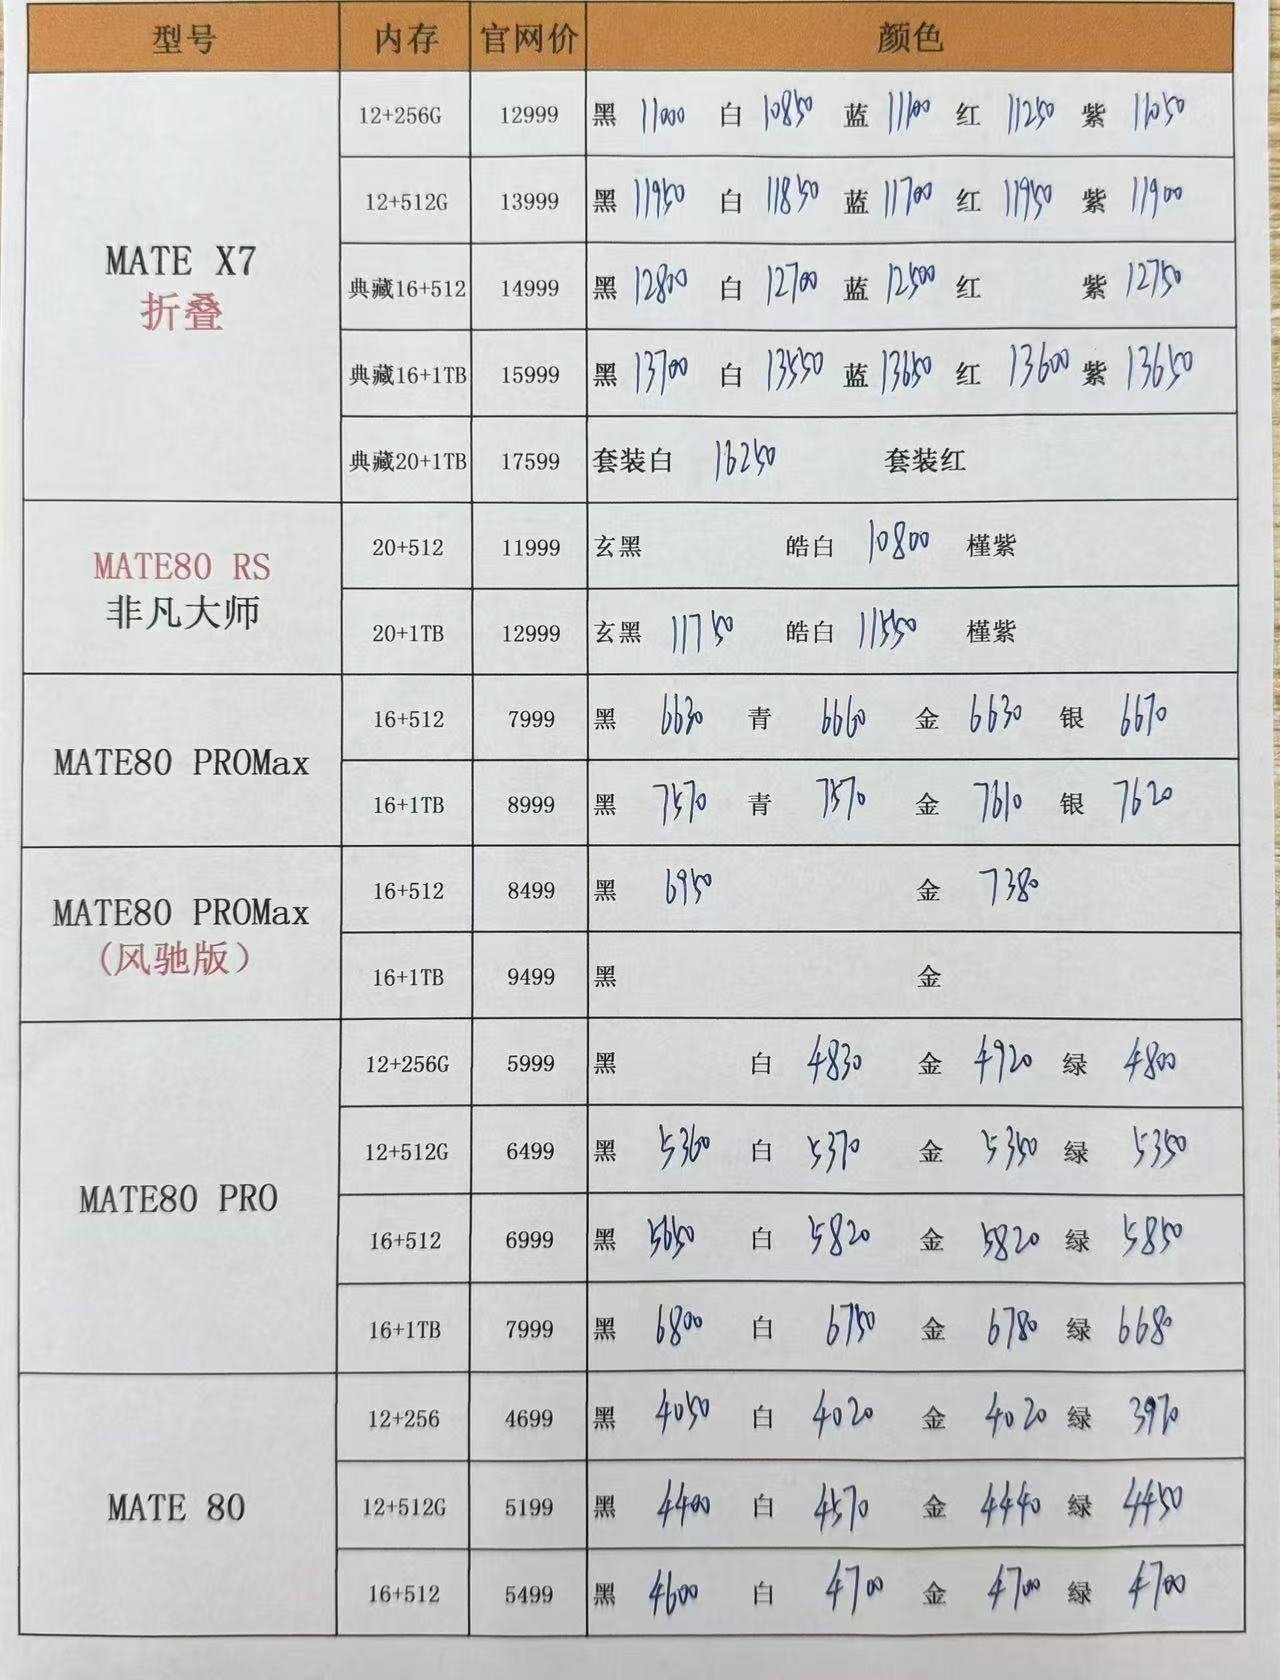 型号 内存 官网价 颜色
MATE X7
折叠
12+256G 12999 黑 11000 白 10850 蓝 11100 红 11250 紫 11050
12+512G 13999 黑 11950 白 11850 蓝 11700 红 11950 紫 11900
典藏16+512 14999 黑 12800 白 12700 蓝 12500 红 紫 12750
典藏16+1TB 15999 黑 13700 白 13550 蓝 13650 红 13600 紫 13650
典藏20+1TB 17599 套装白 16250 套装红
MATE80 RS
非凡大师
20+512 11999 玄黑 皓白 10800 槿紫
20+1TB 12999 玄黑 11750 皓白 11550 槿紫
MATE80 PROMax
16+512 7999 黑 6630 青 6660 金 6630 银 6670
16+1TB 8999 黑 7570 青 7570 金 7610 银 7620
MATE80 PROMax
(风驰版）
16+512 8499 黑 6950 金 7380
16+1TB 9499 黑 金
MATE80 PRO
12+256G 5999 黑 白 4830 金 4920 绿 4800
12+512G 6499 黑 5360 白 5370 金 5350 绿 5350
16+512 6999 黑 5650 白 5820 金 5820 绿 5850
16+1TB 7999 黑 6800 白 6750 金 6780 绿 6680
MATE 80
12+256 4699 黑 4050 白 4020 金 4020 绿 3970
12+512G 5199 黑 4400 白 4570 金 4440 绿 4450
16+512 5499 黑 4600 白 4700 金 4700 绿 4700